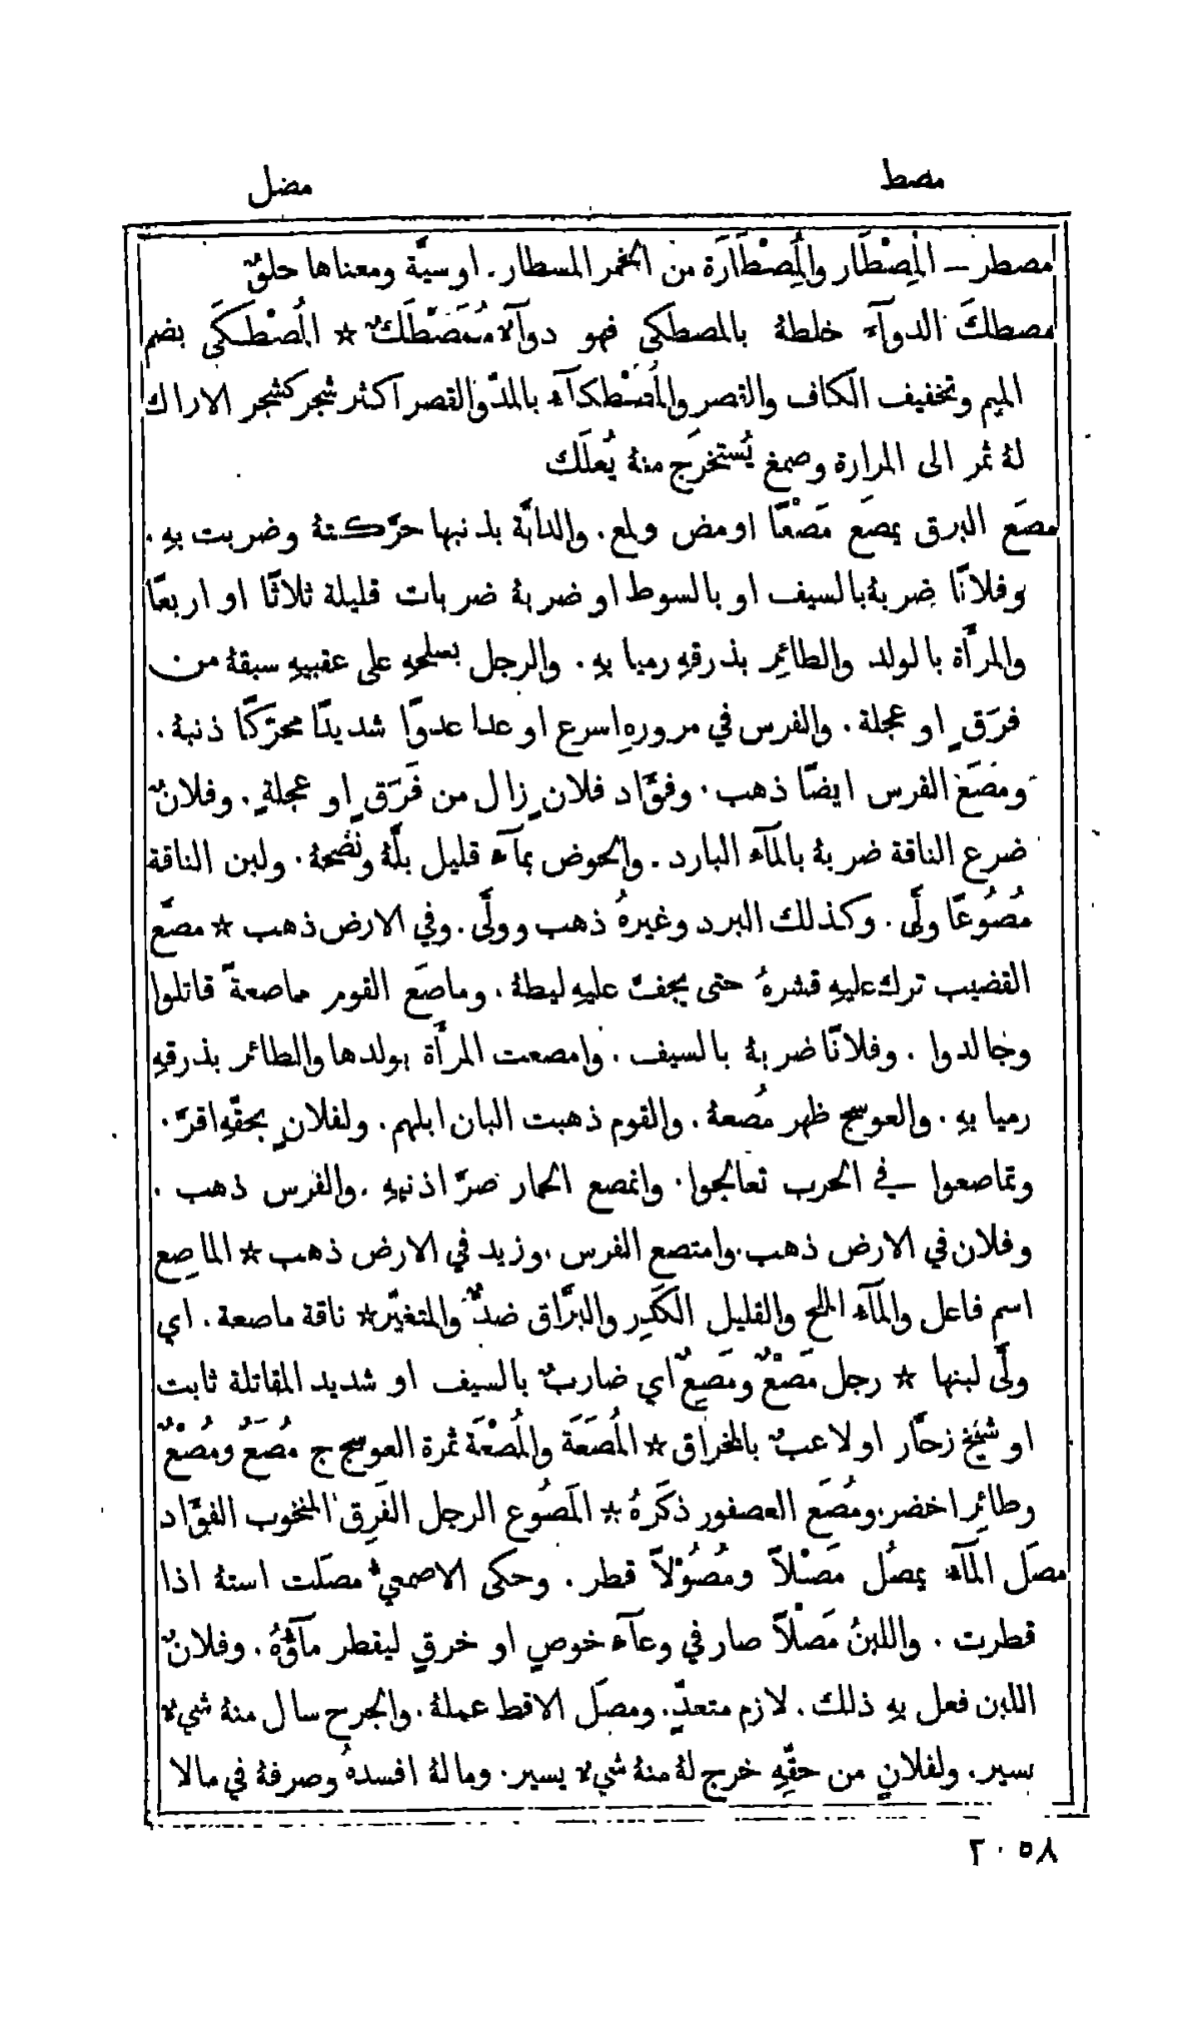 مصط
مضل
مصطر — المِصْطَار والمِصْطَارَة من الخمر المسطار. او سيَّة ومعناها حلقٌ
مصطكَ الدوآءَ خلطهُ بالمصطكى فهو دوآءٌ مُمَصْطَكٌ * المُصْطَكَى بضم
الميم وتخفيف الكاف والقصر والمُصْطكآء بالمدّ والقصر اكثر شجر كشجر الاراك
لهُ ثمر الى المرارة وصمغ يُستخرَج منهُ يُعلَك
مصَع البرق يمصَع مَصْعًا اومض ولمع. والدابَّة بذنبها حرَّكتهُ وضربت بهِ.
وفلانًا ضربهُ بالسيف او بالسوط او ضربهُ ضربات قليلة ثلاثًا او اربعًا
والمرأَة بالولد والطائِر بذرقهِ رميا بهِ. والرجل بسلحهِ على عقبيهِ سبقهُ من
فرَقٍ او عجلة. والفرس في مرورهِ اسرع او عدا عدوًا شديدًا محرّكًا ذنبهُ.
ومَصَعَ الفرس ايضًا ذهب. وفؤَاد فلانٍ زال من فَرَقٍ او عجلةٍ. وفلانٌ
ضرع الناقة ضربهُ بالمآء البارد. والحوض بمآء قليل بلَّهُ ونضحهُ. ولبن الناقة
مُصُوعًا ولَّى. وكذلك البرد وغيرهُ ذهب وولَّى. وفي الارض ذهب * مصَّع
القضيب ترك عليهِ قشرهُ حتى يجفّ عليهِ ليطهُ. وماصَع القوم مماصعةً قاتلوا
وجالدوا. وفلانًا ضربهُ بالسيف. وامصعت المرأَة بولدها والطائر بذرقهِ
رميا بهِ. والعوسج ظهر مُصعهُ. والقوم ذهبت البان ابلهم. ولفلانٍ بحقّهِ اقرَّ.
وتماصعوا في الحرب تعالجوا. وانمصع الحمار صرَّ اذنيهِ. والفرس ذهب.
وفلان في الارض ذهب. وامتصع الفرس. وزيد في الارض ذهب * الماصِع
اسم فاعل والمآء الملح والقليل الكَدِر والبرَّاق ضدٌّ والمتغيّر * ناقة ماصعة. اي
ولَّى لبنها * رجل مَصْعٌ ومَصِعٌ اي ضاربٌ بالسيف او شديد المقاتلة ثابت
او شَيْخ زحَّار او لاعبٌ بالمخراق * المُصَعَة والمُصْعَة ثمرة العوسج ج مُصَعٌ ومُصْعٌ
وطائِر اخضر. ومُصَع العصفور ذكَرهُ * المَصُوع الرجل الفَرِق المنخوب الفؤَاد
مصَل المآء يمصُل مَصْلاً ومُصُوْلاً قطر. وحكى الاصمعيّ مصَلت استهُ اذا
قطرت. واللبنُ مَصْلاً صار في وعآء خوصٍ او خرقٍ ليقطر مآؤُهُ. وفلانٌ
اللبن فعل بهِ ذلك. لازم متعدٍّ. ومصَل الاقط عملهُ. والجرح سال منهُ شيءٌ
يسير. ولفلانٍ من حقّهِ خرج لهُ منهُ شيءٌ يسير. ومالهُ افسدهُ وصرفهُ في مالا
٢٠٥٨